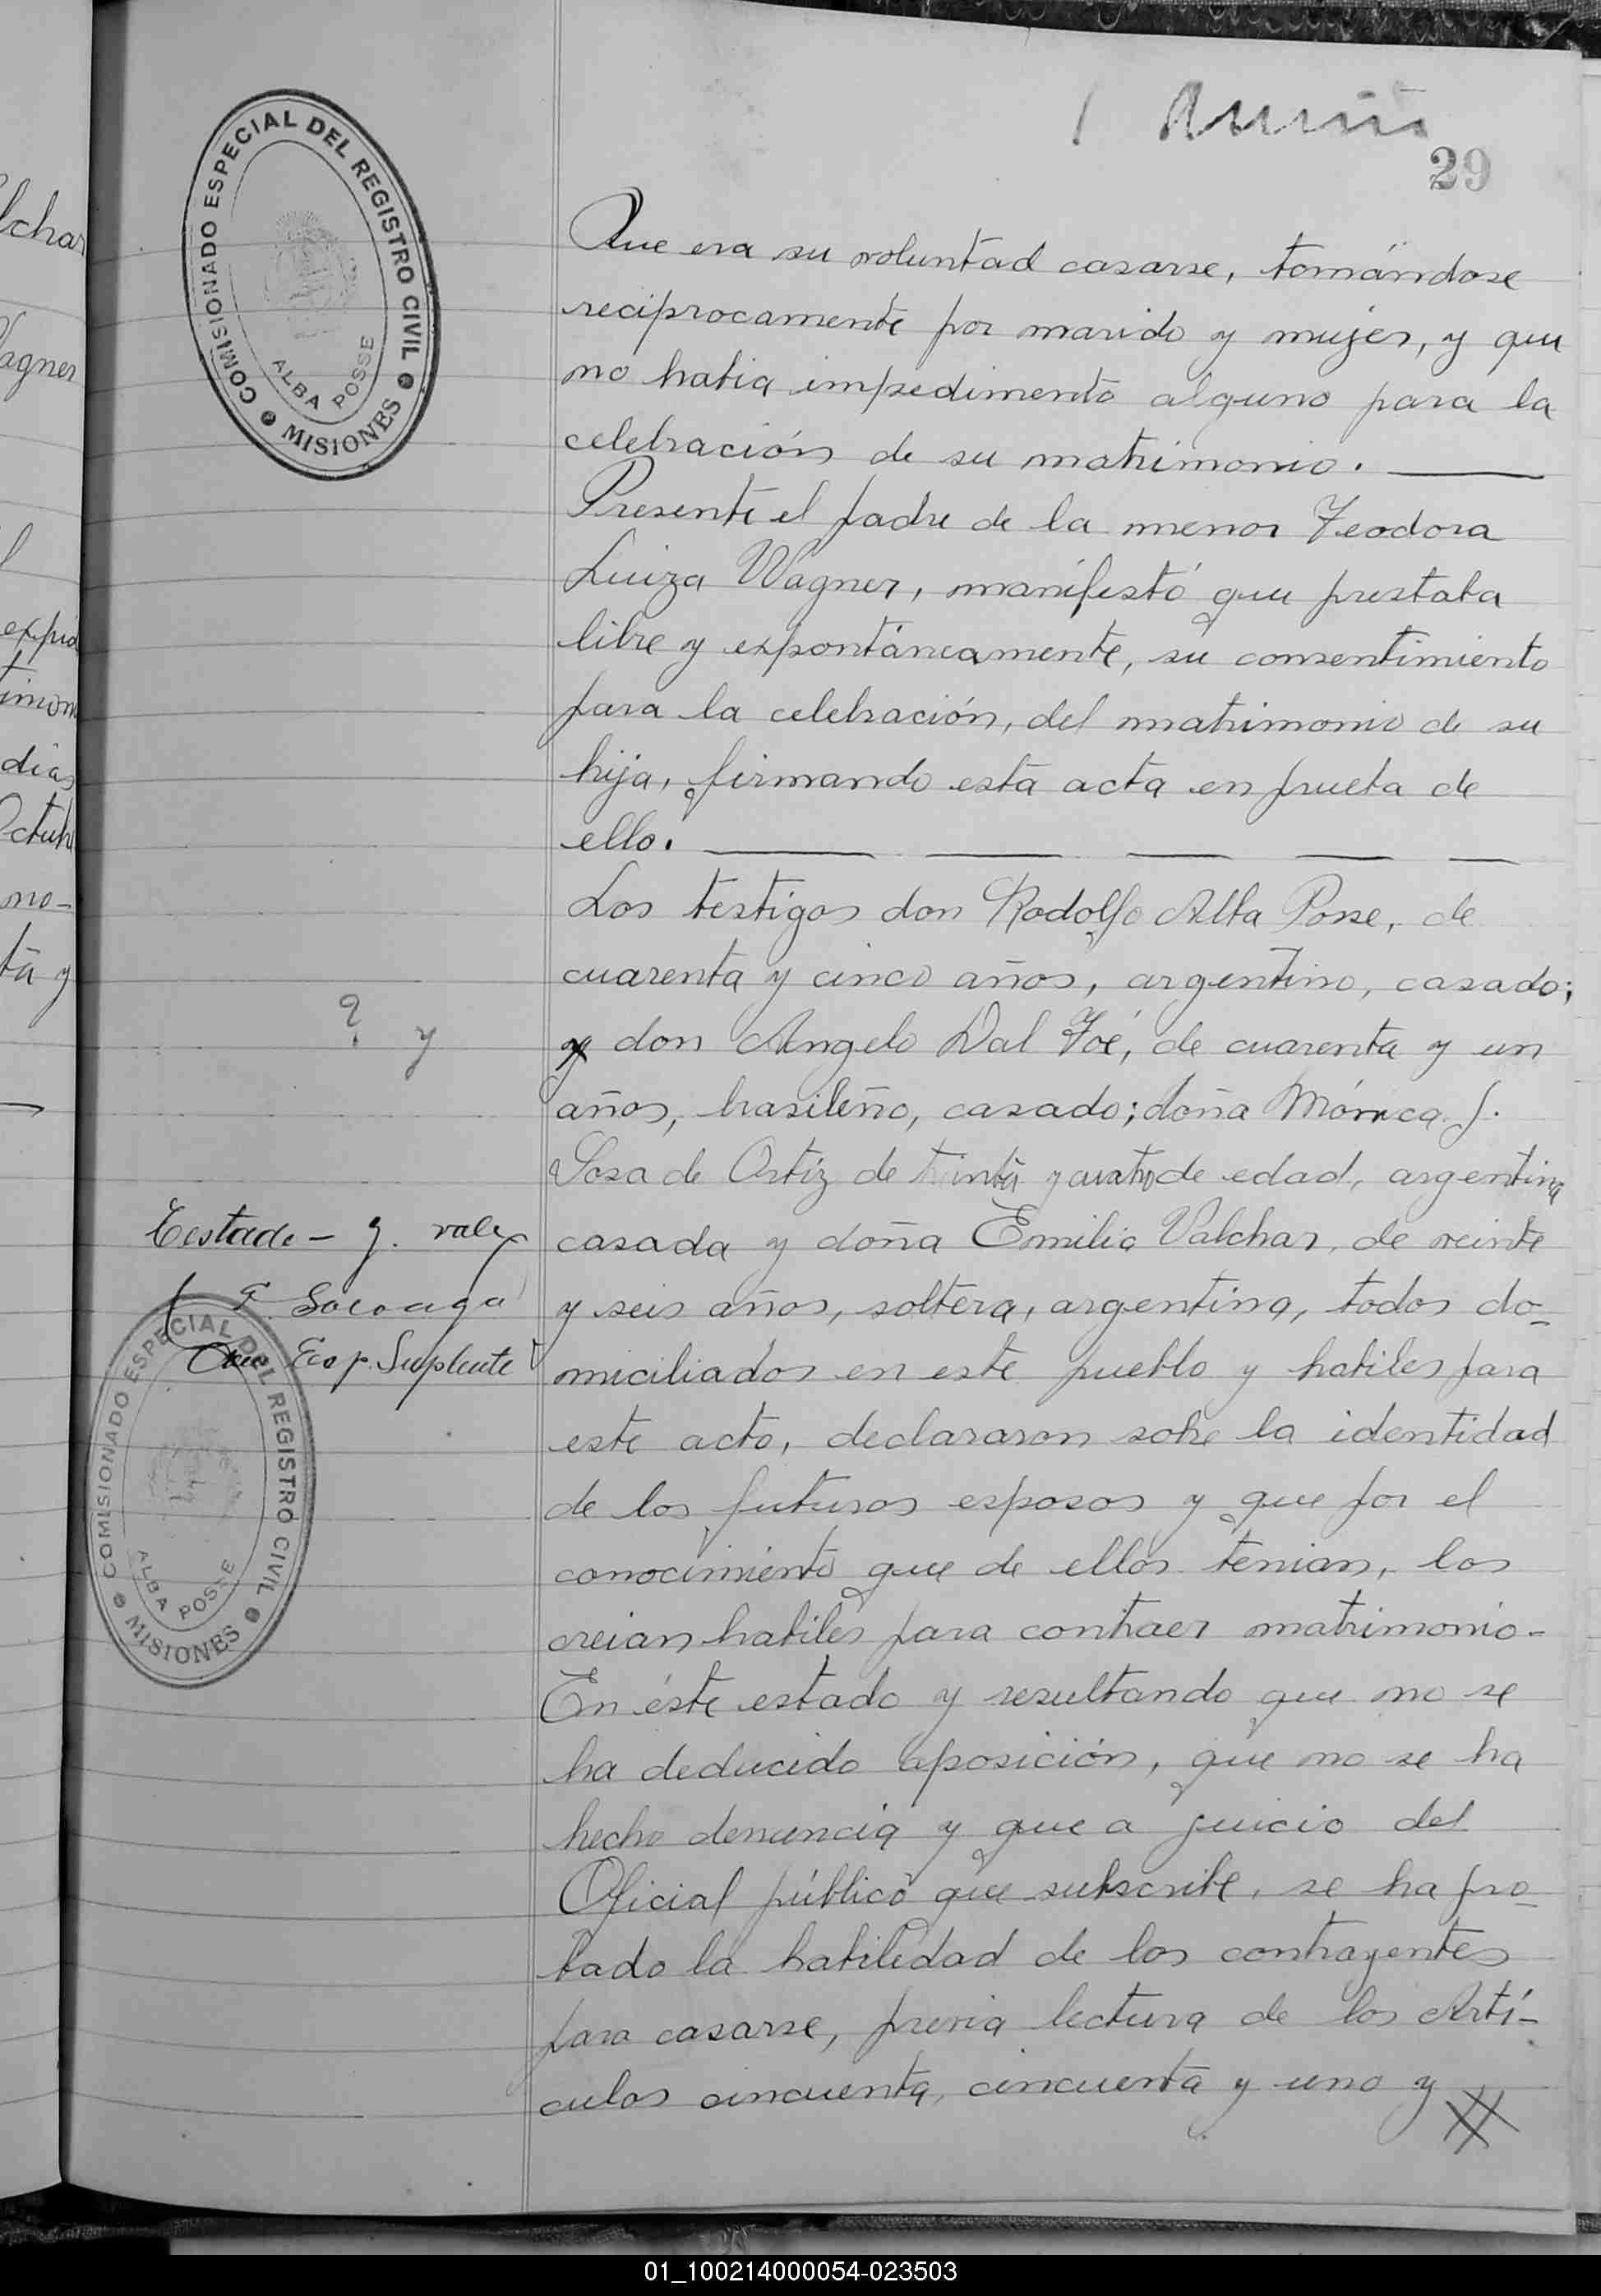 lchar
Wagner
l
expid
t
imon
dias
Octub
mo-
ta y
COMISIONADO ESPECIAL DEL REGISTRO CIVIL
ALBA POSSE
MISIONES
29
Que era su voluntad casarse, tomándose
reciprocamente por marido y mujer, y que
no habia impedimento alguno para la
celebración de su matrimonio.
Presente el padre de la menor Teodora
Luiza Wagner, manifestó que prestaba
libre y expontáneamente, su consentimiento
para la celebración, del matrimonio de su
hija, firmando esta acta en prueba de
ello.
Los testigos don Rodolfo Alba Posse, de
cuarenta y cinco años, argentino, casado;
? y
y don Angelo Dal Foé, de cuarenta y un
años, brasileño, casado; doña Mónica J.
Sosa de Ortíz de trinta y cuatro de edad, argentina
Testado - y. vale
casada y doña Emilia Valchar, de veinte
y seis años, soltera, argentina, todos do-
Esp. Suplente
miciliados en este pueblo y habiles para
COMISIONADO ESPECIAL DEL REGISTRO CIVIL
ALBA POSSE
MISIONES
este acto, declararon sobre la identidad
de los futuros esposos y que por el
conocimiento que de ellos tenian, los
creian habiles para contraer matrimonio-
En éste estado y resultando que no se
ha deducido oposición, que no se ha
hecho denuncia y que a juicio del
Oficial público que subscribe, se ha pro-
bado la habilidad de los contrayentes
para casarse, previa lectura de los Artí-
culos cincuenta, cincuenta y uno y
01_100214000054-023503